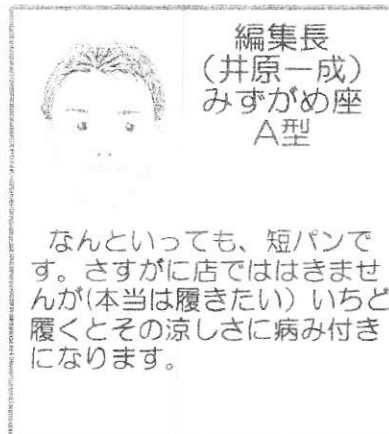 編集長
（井原一成）
みずがめ座
A型
なんといっても、短パンで
す。さすがに店でははきませ
んが(本当は履きたい）いちど
履くとその涼しさに病み付き
になります。